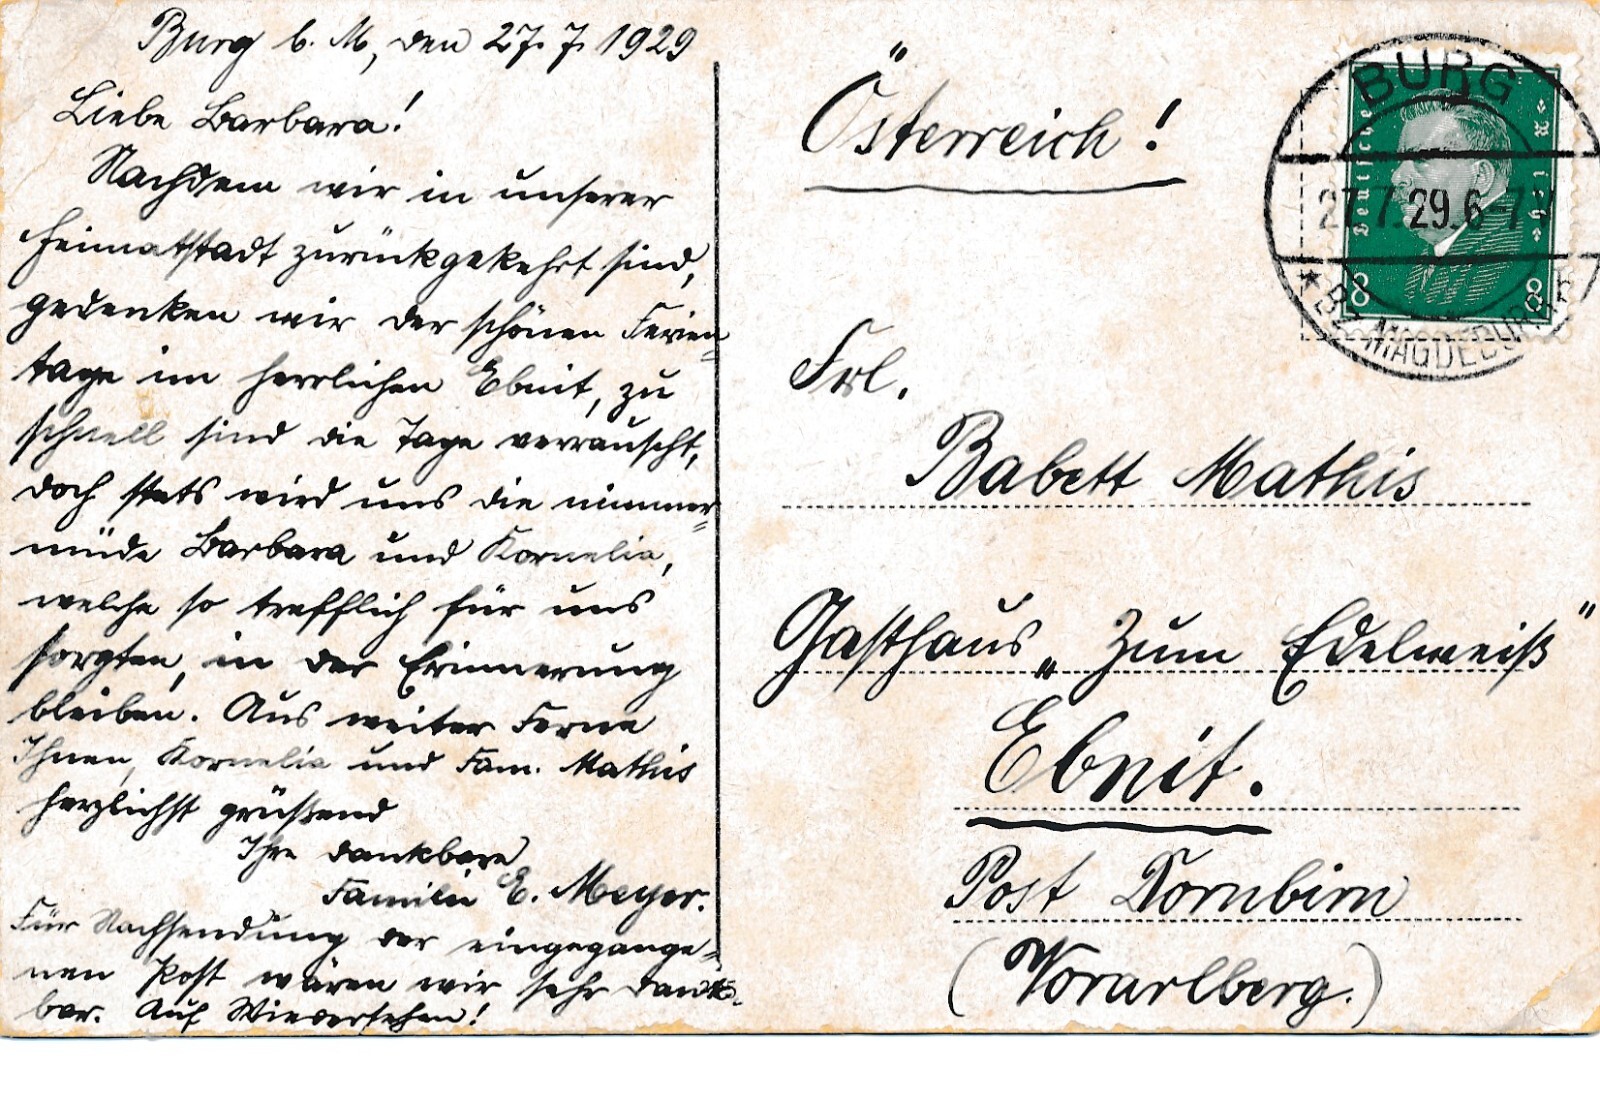 Burg b. M, den 27. 7. 1929
Liebe Barbara!
Nachdem wir in unserer
Heimatstadt zurückgekehrt sind,
gedenken wir der schönen Ferien=
tage im herrlichen Ebnit, zu
schnell sind die Tage verrauscht,
doch stets wird uns die nimmer=
müde Barbara und Kornelia,
welche so trefflich für uns
sorgten, in der Erinnerung
bleiben. Aus weiter Ferne
Ihnen, Kornelia und Fam. Mathis
herzlichst grüßend
Ihre dankbare
Familie E. Meyer.
Für Nachsendung der eingegange=
nen Post wären wir sehr dank=
bar. Auf Wiedersehen!
Österreich!
Frl.
Babett Mathis
Gasthaus „Zum Edelweiß"
Ebnit.
Post Dornbirn
(Vorarlberg.)
BURG
27.7.29.6-7
* BZ. MAGDEBURG
Deutsches Reich
8 8